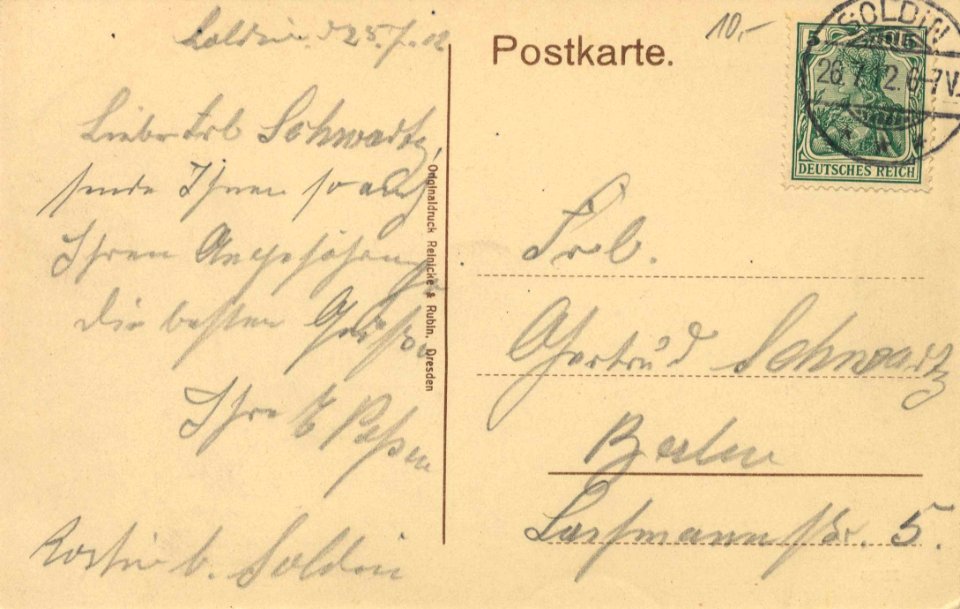 Soldin. d 25.7.12
Liebe Frl Schwartz,
sende Ihnen so auch
Ihren Angehörigen
die besten Grüsse
Ihre
b. Soldin
Originaldruck Reinicke & Rubin, Dresden
Postkarte.
10,-
SOLDIN
26.7.12.6-7V.
5 5
DEUTSCHES REICH
Frl.
Gertrud Schwartz
Berlin
5.